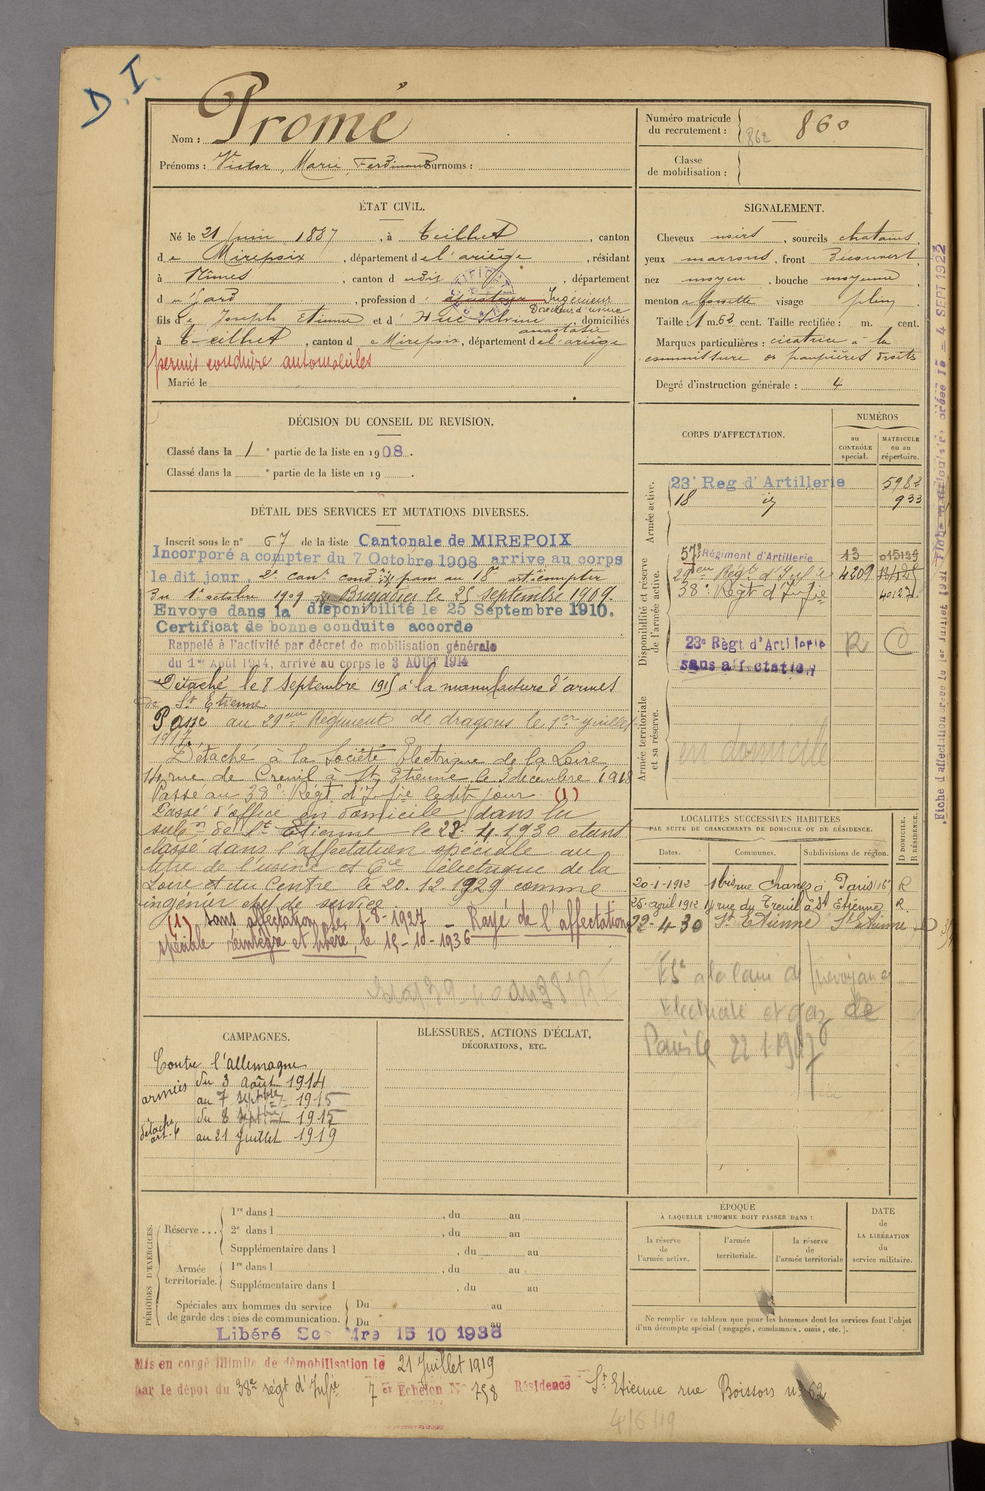 D. I.
Nom : Promé
Prénoms : Victor, Marie, Ferdinand Surnoms :
Numéro matricule du recrutement : 862 860
Classe de mobilisation :
ÉTAT CIVIL.
Né le 21 Juin 1887, à Teilhet, canton
de Mirepoix, département de l'ariège, résidant
à Nimes, canton d udit, département
d u Gard, profession d' ajusteur Ingénieur
Directeur d'usine
fils de Joseph Etienne et d' Huc Silvine anastasie, domiciliés
à Teilhet, canton de Mirepoix, département de l'ariège
permis conduire automobiles
Marié le
SIGNALEMENT.
Cheveux noirs, sourcils chatains,
yeux marrons, front Découvert,
nez moyen, bouche moyenne,
menton à fossette visage plein
Taille : 1 m. 62 cent. Taille rectifiée : m. cent.
Marques particulières : cicatrice à la
commissure des paupières droites
Degré d'instruction générale : 4
DÉCISION DU CONSEIL DE REVISION.
Classé dans la 1re partie de la liste en 1908.
Classé dans la e partie de la liste en 19 .
DÉTAIL DES SERVICES ET MUTATIONS DIVERSES.
Inscrit sous le n° 67 de la liste Cantonale de MIREPOIX
Incorporé a compter du 7 Octobre 1908 arrive au corps
le dit jour, 2e can. cond. passé au 18e art. à compter
du 1er octobre 1909 Brigadier le 25 septembre 1909.
Envoye dans la disponibilité le 25 Septembre 1910.
Certificat de bonne conduite accorde
Rappelé à l'activité par décret de mobilisation générale
du 1er Août 1914, arrivé au corps le 3 AOUT 1914
Détaché le 8 Septembre 1915 à la manufacture d'armes
de St Etienne.
Passé au 29eme Régiment de dragons le 1er juillet
1917.
Détaché à la Société Electrique de la Loire
14, rue de Creuil à St Etienne le 3 decembre 1918
Passé au 38e Régt d'Infie ledit jour (1)
Passé d'office en domicile dans la
subon de St Etienne le 22. 4. 1930 etant
classé dans l'affectation spéciale au
titre de l'usine et Cie électrique de la
Loire et du Centre le 20. 12. 1929 comme
ingénieur chef de service.
(1) sans affectation le 1-8-1927 - Rayé de l'affectation
spéciale réintégré et libéré, le 15-10-1936
CORPS D'AFFECTATION.
NUMÉROS
AU CONTRÔLE spécial.
MATRICULE ou au répertoire.
Armée active.
23e Reg d'Artillerie 5982
18 id 933
Disponibilité et réserve de l'armée active.
57e Régiment d'Artillerie 13 015129
29eme Régt 4209
38e Régt d'Infie 40127
23e Règt d'Artillerie R
sans affectation
Armée territoriale et sa réserve.
en domicile
LOCALITÉS SUCCESSIVES HABITÉES
PAR SUITE DE CHANGEMENTS DE DOMICILE OU DE RÉSIDENCE.
Dates. Communes. Subdivisions de région. D DOMICILE. R RÉSIDENCE.
20-1-1912 1 bis rue Chanez à Paris (16e) R
25 april 1912 14 rue du Treuil à St Etienne R
22-4-30 St Etienne St Etienne D
electricité et gaz de
Paris le 22 1 1937
CAMPAGNES.
Contre l'allemagne
armées du 3 août 1914
au 7 septbre 1915
détaché art. 6 du 8 septbre 1915
au 21 Juillet 1919
BLESSURES, ACTIONS D'ÉCLAT,
DÉCORATIONS, ETC.
PÉRIODES D'EXERCICES.
Réserve ....
1re dans l , du au
2e dans l , du au
Supplémentaire dans l , du au
Armée territoriale.
1re dans l , du au
Supplémentaire dans l , du au
Spéciales aux hommes du service
de garde des voies de communication.
Du au
Du au
Libéré Ser Mre 15 10 1936
ÉPOQUE
À LAQUELLE L'HOMME DOIT PASSER DANS :
la réserve de l'armée active.
l'armée territoriale.
la réserve de l'armée territoriale
DATE de LA LIBÉRATION du service militaire.
Ne remplir ce tableau que pour les hommes dont les services font l'objet
d'un décompte spécial (engagés, condamnés, omis, etc.).
Mis en congé illimité de démobilisation le 21 Juillet 1919
par le dépot du 38e régt d'Infie 7 et Echelon No 758 Résidence St Etienne rue Boisson no 62
4/6 49